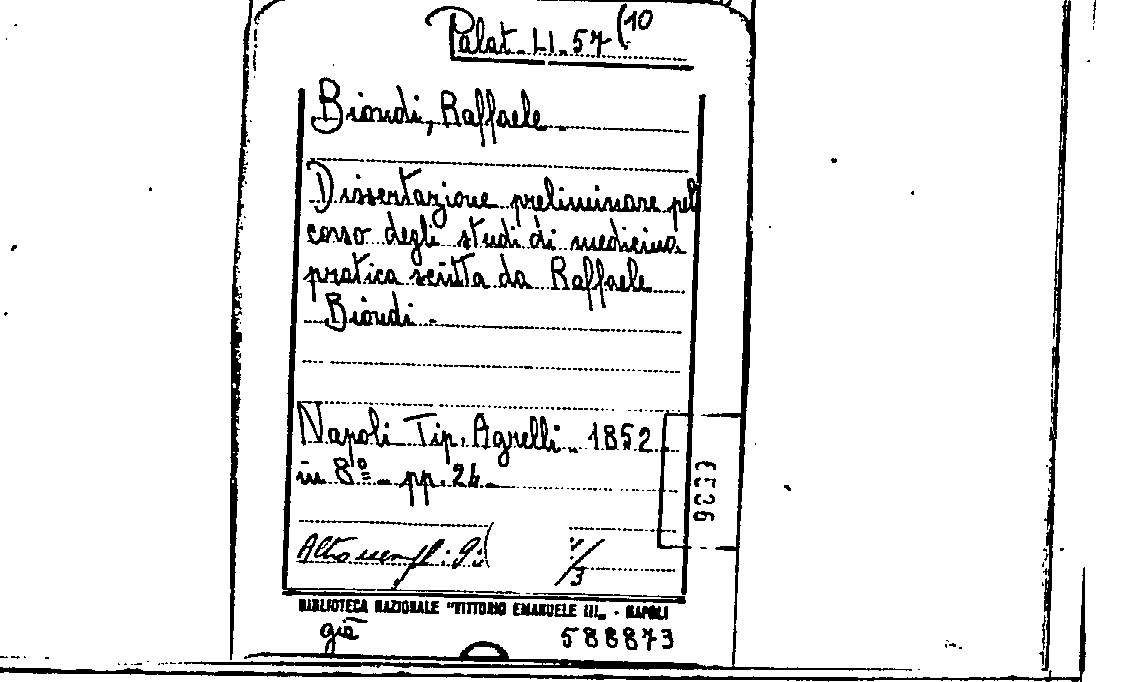 Palat. LI. 57 (10
Biondi, Raffaele.
Dissertazione preliminare pel
corso degli studi di medicina
pratica scritta da Raffaele
Biondi.
Napoli Tip. Agrelli. 1852
in 8º pp. 24.
V/3
BIBLIOTECA NAZIONALE "VITTORIO EMANUELE III„ - NAPOLI
già 588873